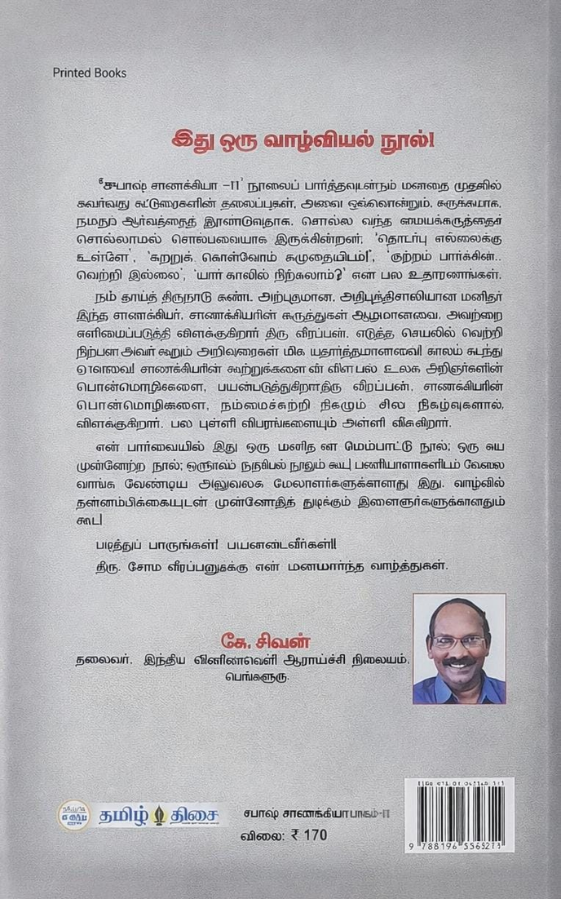 Printed Books
இது ஒரு வாழ்வியல் நூல்!
சாணக்கியா -II' நூலைப் பார்த்தவுடன்நம் மனதை முதலில்
தலைப்புகள், அவை ஒவ்வொன்றும்,
ஆர்வத்தைத் தூண்டுவதாக, சொல்ல வந்த மையக்கருத்தைச்
சொல்லாமல் சொல்பவையாக இருக்கின்றன; 'தொடர்பு எல்லைக்கு
உள்ளே', கொள்வோம் கழுதையிடம்!', 'குற்றம் பார்க்கின்..
வெற்றி இல்லை', 'யார் காலில் நிற்கலாம்?' என பல உதாரணங்கள்.
நம் தாய்த் திருநாடு கண்ட அற்புதமான, அதிபுத்திசாலியான மனிதர்
இந்த சாணக்கியர், சாணக்கியரின் கருத்துகள் ஆழமானவை. அவற்றை
எளிமைப்படுத்தி விளக்குகிறார் திரு வீரப்பன். எடுத்த செயலில் வெற்றி
அவர் கூறும் அறிவுரைகள் மிக காலம் கடந்து
சாணக்கியரின் பல உலக அறிஞர்களின்
பொன்மொழிகளை, சாணக்கியரின்
பொன்மொழிகளை, நம்மைச்சுற்றி நிகழும் சில நிகழ்வுகளால்,
விளக்குகிறார். பல புள்ளி விபரங்களையும் அள்ளி வீசுகிறார்.
என் பார்வையில் இது ஒரு மனித வள மேம்பாட்டு நூல்; ஒரு சுய
முன்னேற்ற நூல்;
வாங்க வேண்டிய அலுவலக மேலாளர்களுக்கானது இது. வாழ்வில்
தன்னம்பிக்கையுடன் முன்னேறத் துடிக்கும் இளைஞர்களுக்கானதும்
கூட!
படித்துப் பாருங்கள்! பயனடைவீர்கள்!!
திரு. சோம வீரப்பனுக்கு என் மனமார்ந்த வாழ்த்துகள்.
கே. சிவன்
தலைவர், இந்திய விண்வெளி ஆராய்ச்சி நிலையம்,
பெங்களூரு.
தமிழ் திசை
சபாஷ் சாணக்கியா பாகம்-II
விலை: ₹ 170